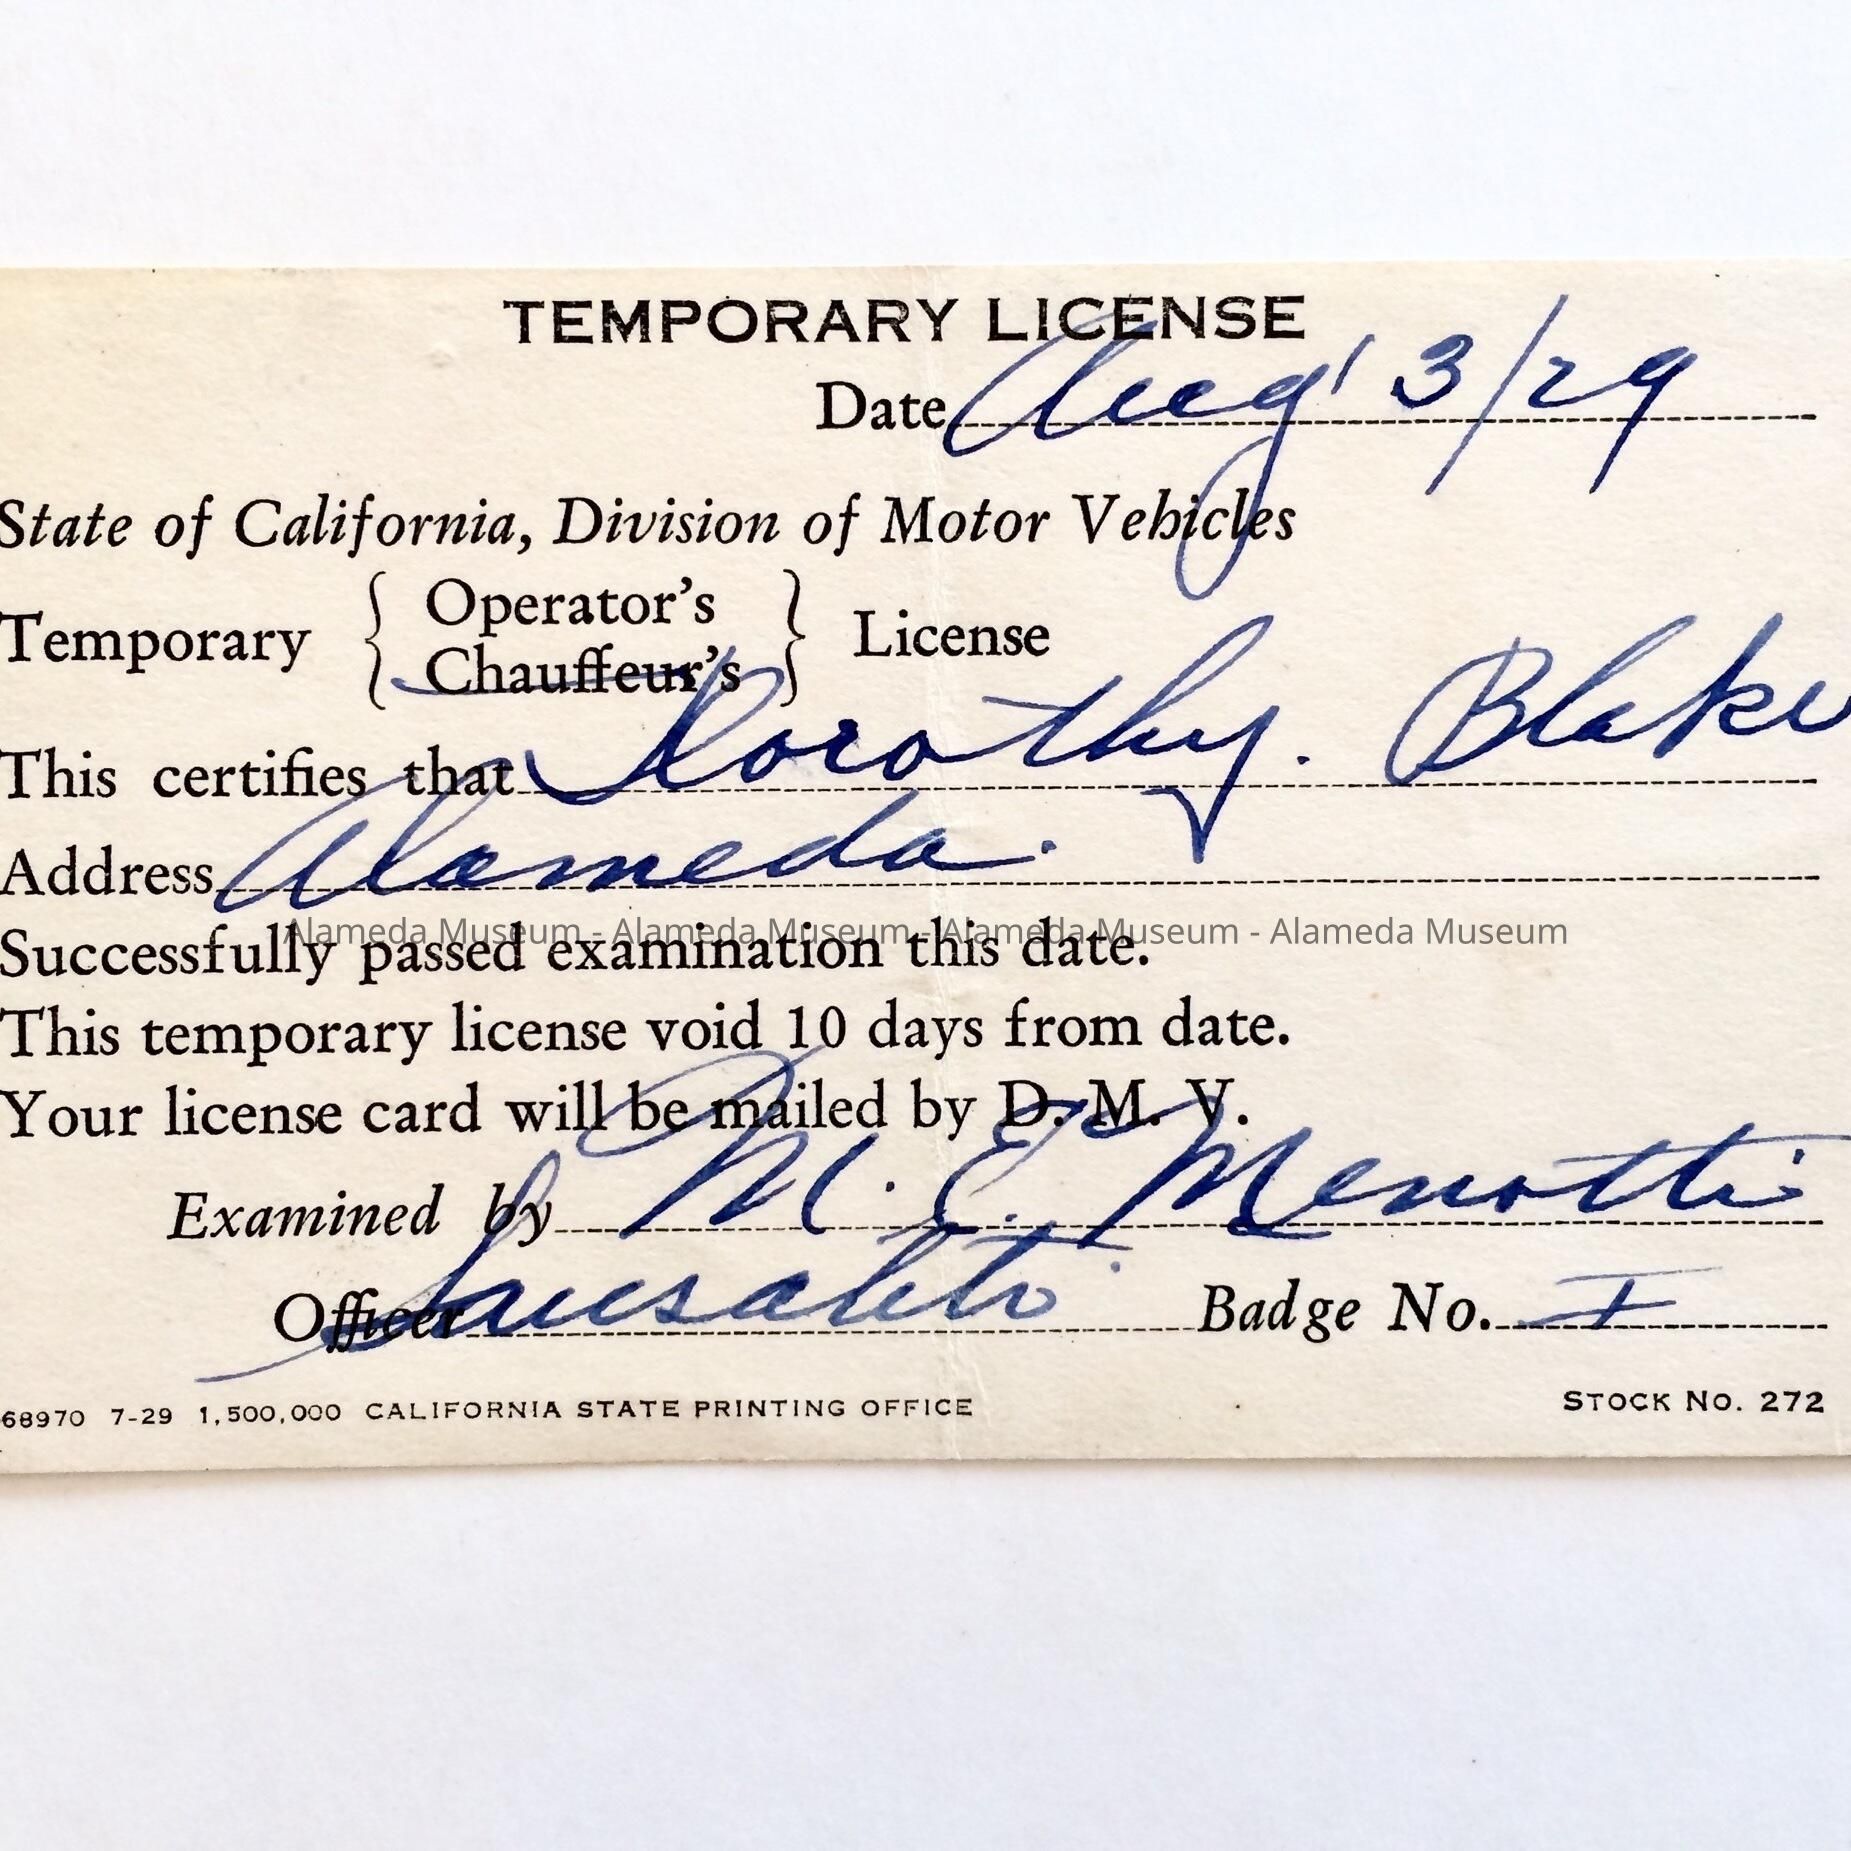 TEMPORARY LICENSE
Date Aug' 3/29
State of California, Division of Motor Vehicles
Temporary { Operator's Chauffeur's } License
This certifies that Dorothy. Blake
Address Alameda.
Alameda Museum - Alameda Museum - Alameda Museum - Alameda Museum
Successfully passed examination this date.
This temporary license void 10 days from date.
Your license card will be mailed by D. M. V.
Examined by M. E. Menotti
Officer Sausalito Badge No. I
68970 7-29 1,500,000 CALIFORNIA STATE PRINTING OFFICE STOCK NO. 272